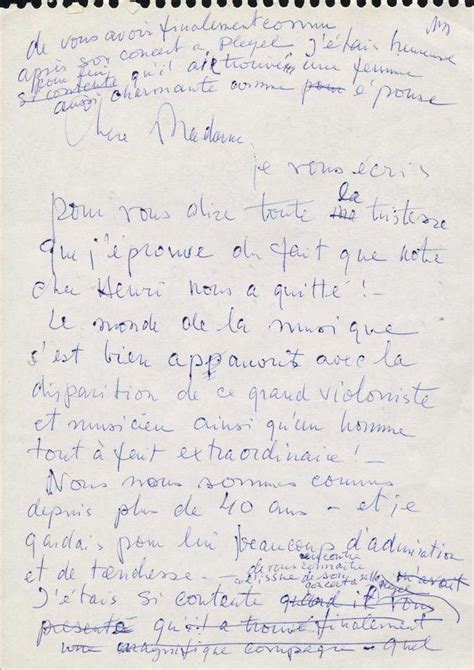 de vous avoir finalement connu
après son concert a Pleyel. J'étais heureuse
pour lui
si contente qu'il ait trouvé une femme
aussi charmante comme pour épouse
Chere Madame,
je vous écris
la
pour vous dire toute ma tristesse
que j'éprouve du fait que notre
cher Henri nous a quitté ! –
Le monde de la musique
s'est bien appauvris avec la
disparition de ce grand violoniste
et musicien ainsi qu'un homme
tout à fait extraordinaire ! –
Nous nous sommes connus
depuis plus de 40 ans – et je
gardais pour lui beaucoup d'admiration
rencontre
de vous connaitre
et de tendresse. – à l'issue de son
concert a salle Pleyel
J'étais si contente quand il vous
m'avait
presenté qu'il a trouvé finalement
une magnifique compagne – Quel